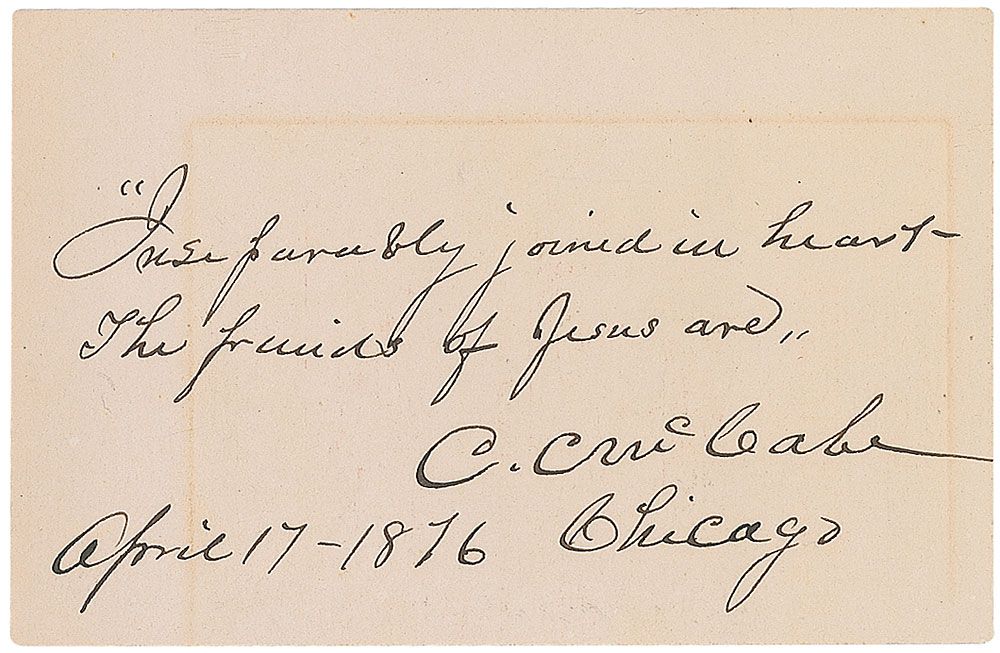 "Inseparably joined in heart-
The friends of Jesus are,,
C. C McCabe
April 17-1876 Chicago